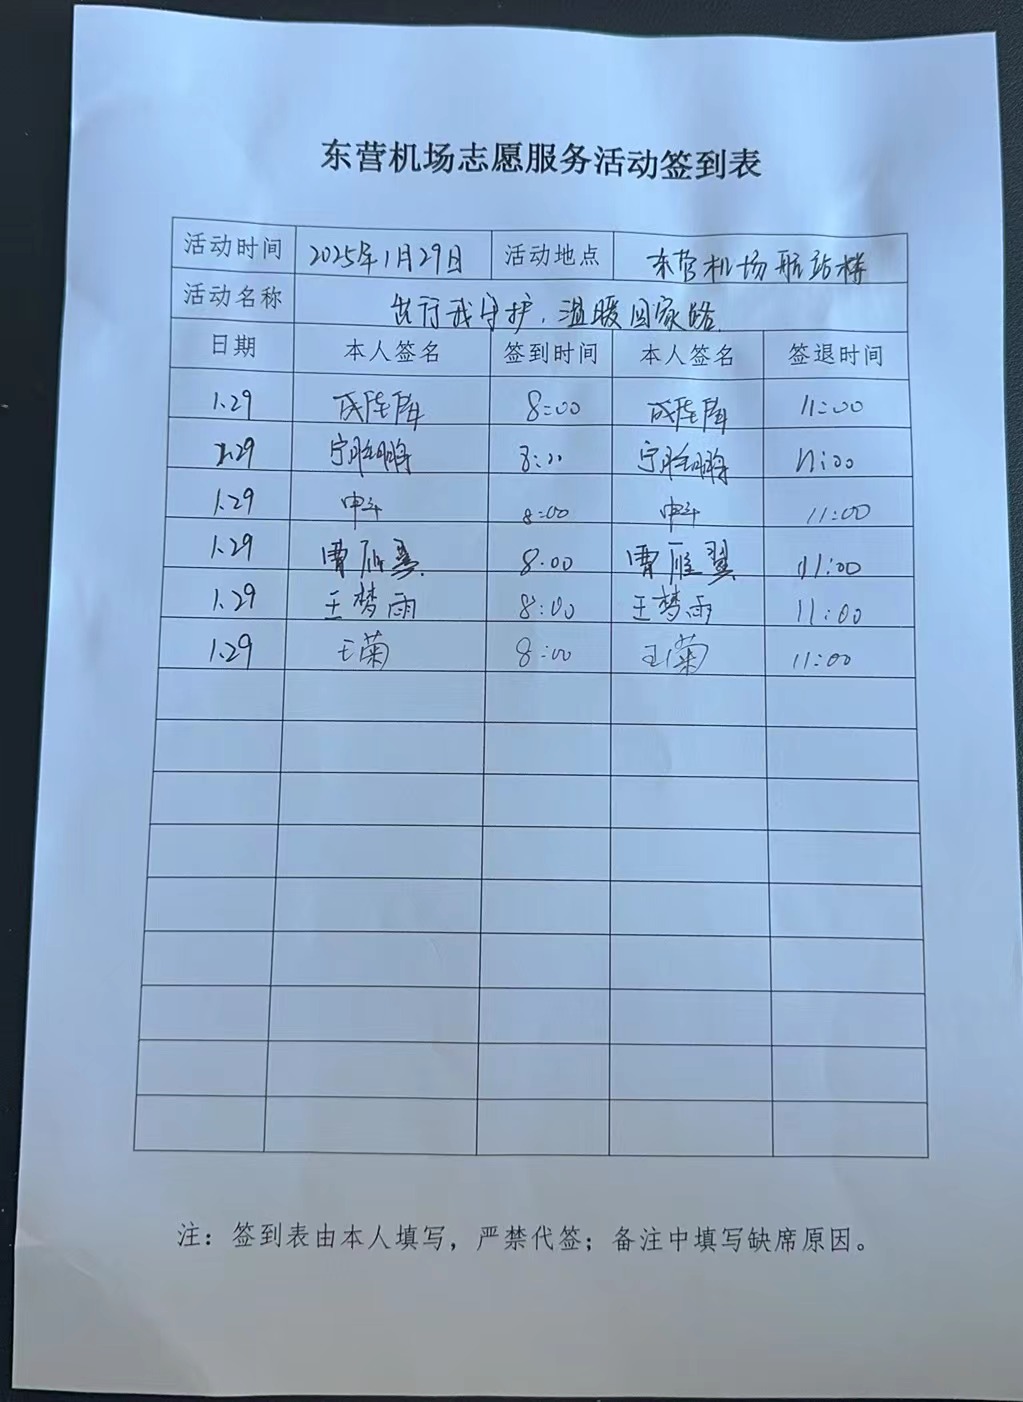 东营机场志愿服务活动签到表
活动时间 2025年1月29日 活动地点 东营机场航站楼
活动名称 出行我守护，温暖回家路
日期 本人签名 签到时间 本人签名 签退时间
1.29 8:00 11:00
1.29 宁胜鹏 8:00 宁胜鹏 11:00
1.29 申斗 8:00 申斗 11:00
1.29 曹雁翼 8:00 曹雁翼 11:00
1.29 王梦雨 8:00 王梦雨 11:00
1.29 王菊 8:00 王菊 11:00
注：签到表由本人填写，严禁代签；备注中填写缺席原因。